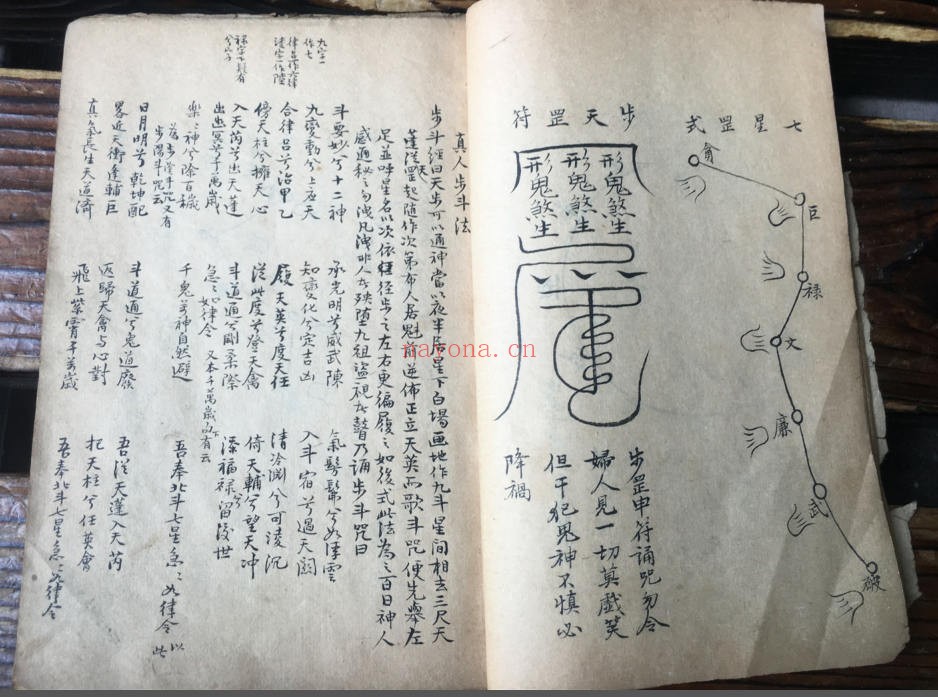 七星罡式
貪
巨
禄
文
廉
武
破
步天罡符
形鬼煞生
形鬼煞生
形鬼煞生
步罡申符誦咒勿令
婦人見一切莫戲笑
但干犯鬼神不慎必
降禍
真人步斗法
步斗經曰天步可以通神當以夜半居星下白場画地作九斗星間相去三尺天
蓬從罡起隨作次第布人居魁前逆佈正立天英而歌斗咒便先舉左
足並呼星名以次依經步之左右更徧履之如後式此法為之百日神人
感通秘之勿洩凡洩非人者殃墮九祖盜視者瞽乃誦步斗咒曰
斗要妙兮十二神 承光明兮威武陳 氣髣髴兮如浮雲
九變動兮上应天 知變化兮定吉凶 入斗宿兮過天関
合律吕兮治甲乙 履天英兮度天任 清冷渊兮可淩沉
傍天柱兮擁天心 從此度兮登天禽 倚天輔兮望天冲
入天芮兮出天蓬 斗道通兮剛柔際 添福禄兮留後世
出幽冥兮千萬歲 急之如律令 又本千萬歲下有云
樂之神兮除百穢 千鬼万神自然避 吾奉北斗七星急之如律令 以
步斗咒云
日月明兮乾坤配 斗道通兮鬼道廢 吾從天蓬入天芮
畧近天衝逢輔巨 返歸天禽与心對 把天柱兮任英會
真氣長生天道濟 飛上紫霄千万歲 吾奉北斗七星急之如律令
nayona.cn